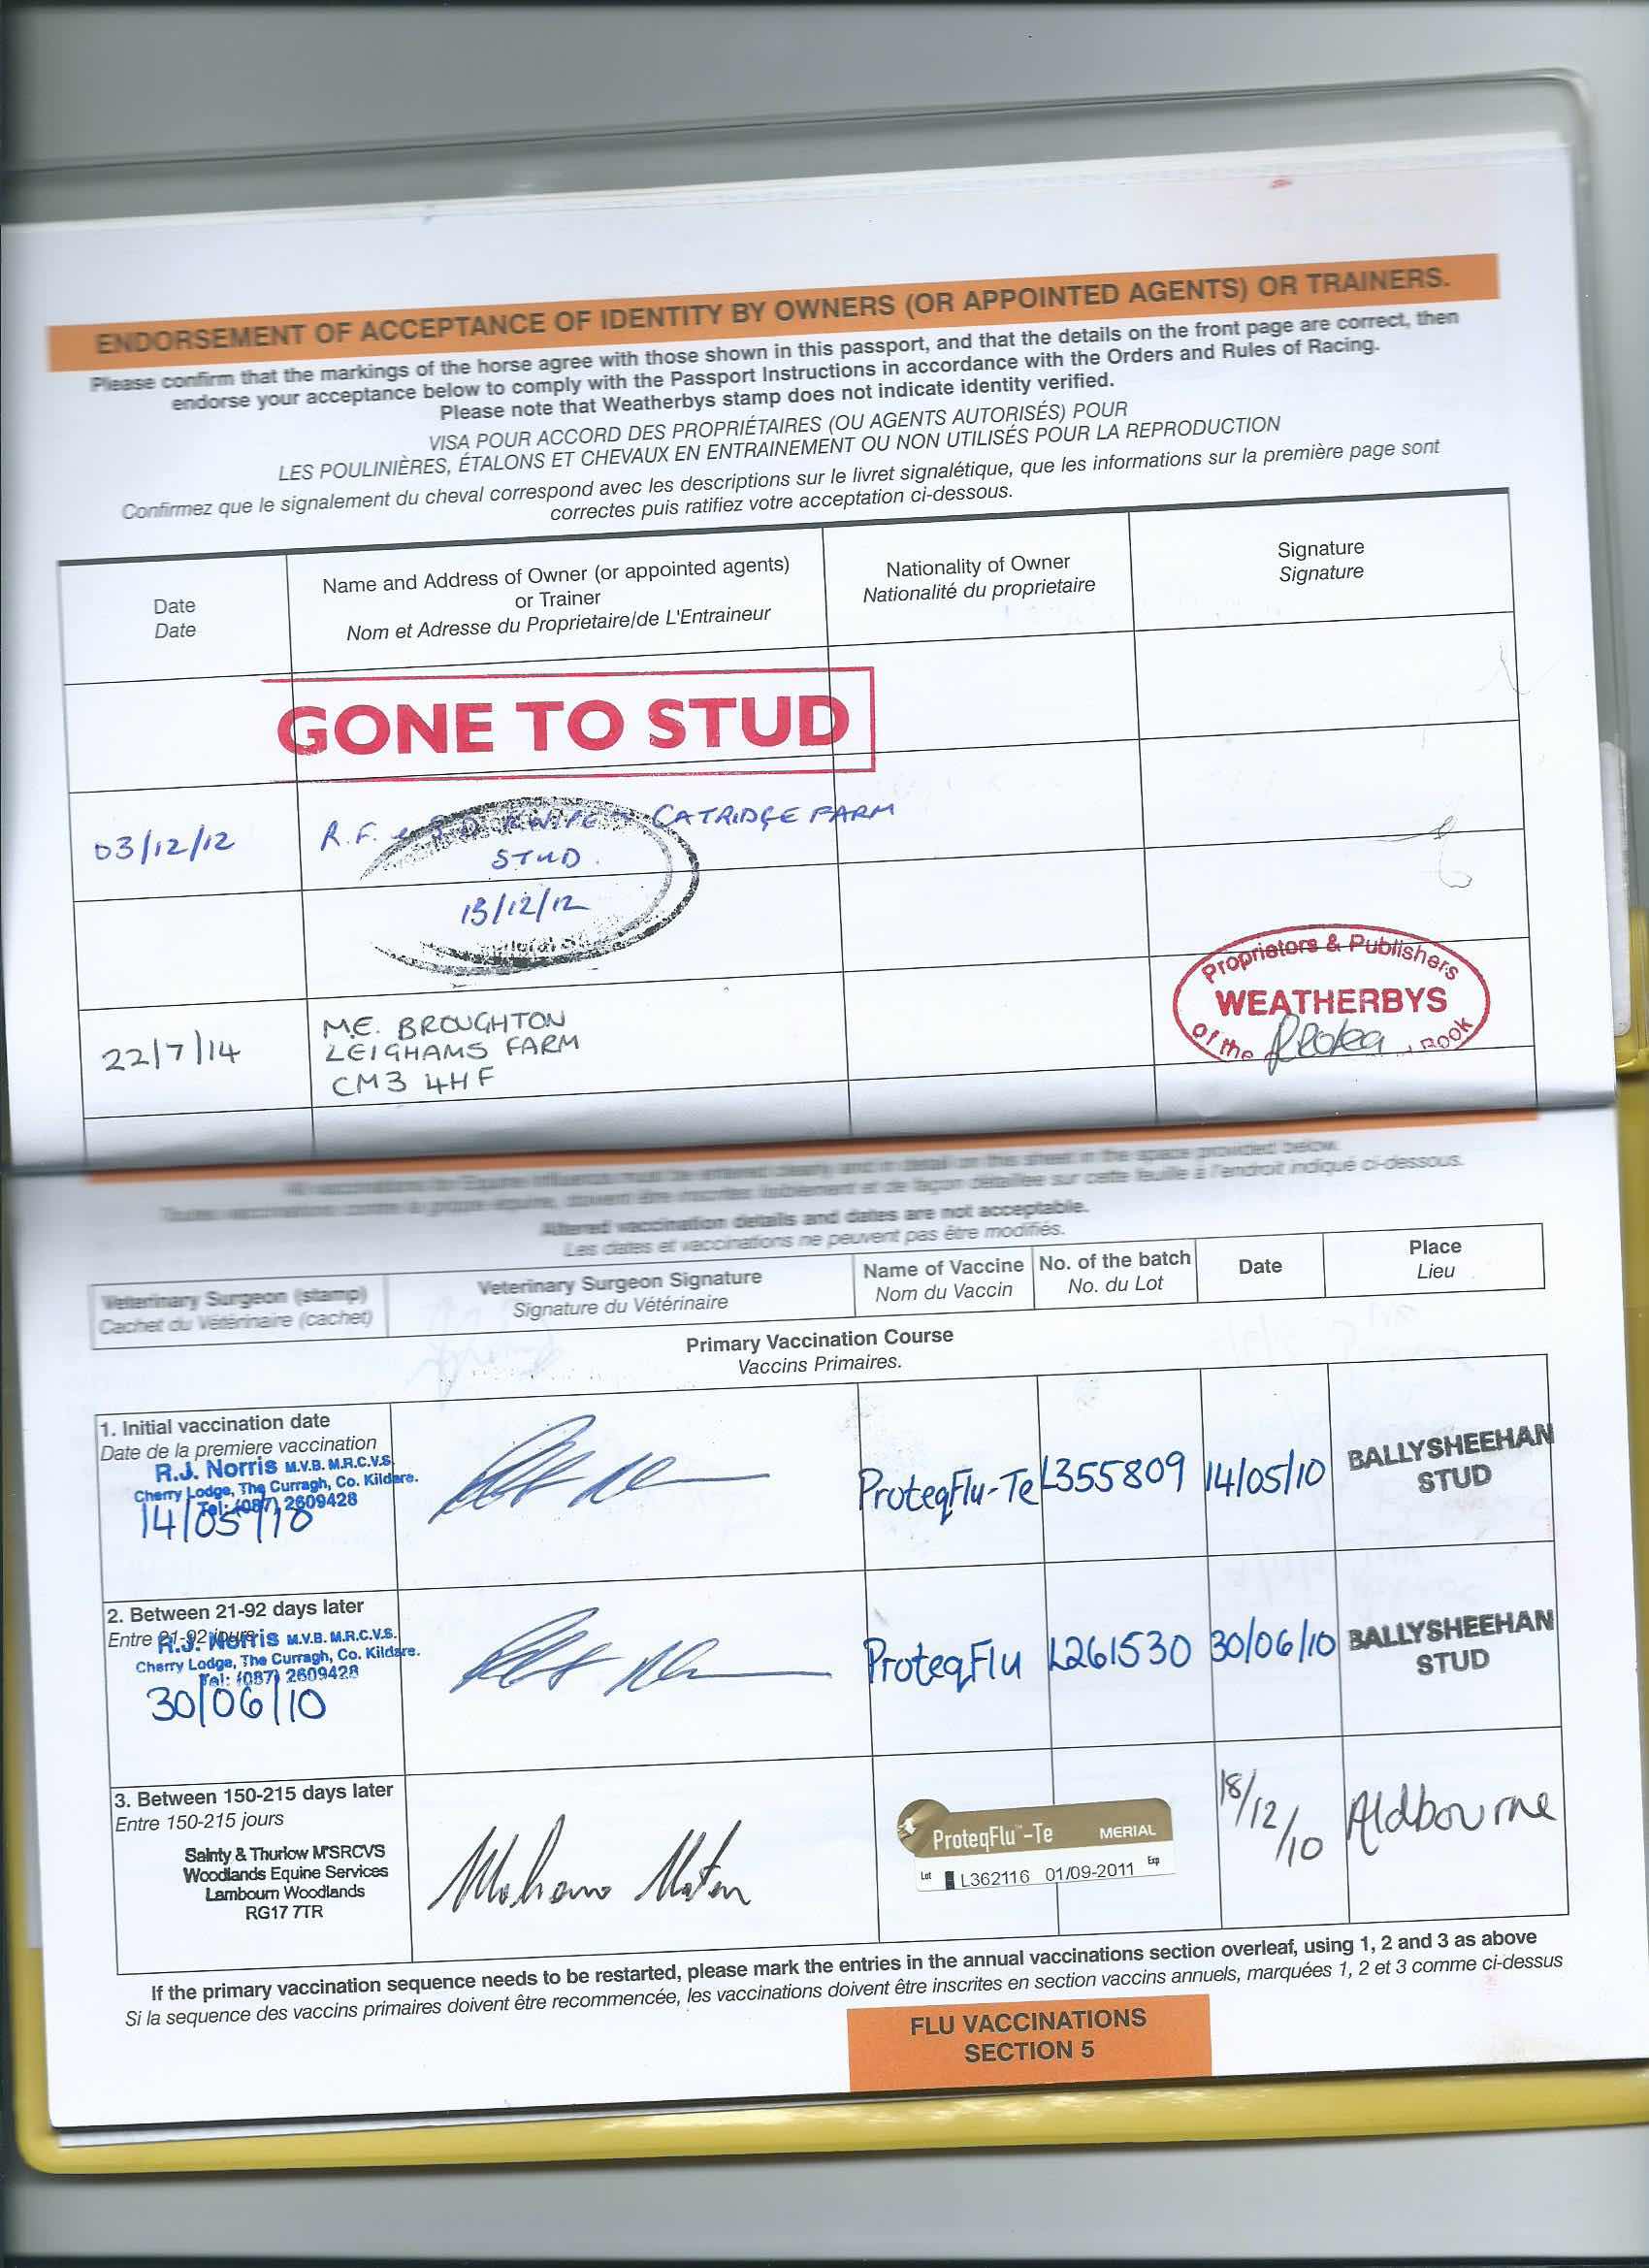 ENDORSEMENT OF ACCEPTANCE OF IDENTITY BY OWNERS (OR APPOINTED AGENTS) OR TRAINERS.
Please confirm that the markings of the horse agree with those shown in this passport, and that the details on the front page are correct, then
endorse your acceptance below to comply with the Passport Instructions in accordance with the Orders and Rules of Racing.
Please note that Weatherbys stamp does not indicate identity verified.
VISA POUR ACCORD DES PROPRIÉTAIRES (OU AGENTS AUTORISÉS) POUR
LES POULINIÈRES, ÉTALONS ET CHEVAUX EN ENTRAINEMENT OU NON UTILISÉS POUR LA REPRODUCTION
Confirmez que le signalement du cheval correspond avec les descriptions sur le livret signalétique, que les informations sur la première page sont
correctes puis ratifiez votre acceptation ci-dessous.
Date
Date
Name and Address of Owner (or appointed agents)
or Trainer
Nom et Adresse du Proprietaire/de L'Entraineur
Nationality of Owner
Nationalité du proprietaire
Signature
Signature
GONE TO STUD
03/12/12
R.F. & CATRIDGE FARM
STUD.
13/12/12
22/7/14
M.E. BROUGHTON
LEIGHAMS FARM
CM3 4HF
Proprietors & Publishers
WEATHERBYS
of the Book
All vaccinations for Equine Influenza must be entered clearly and in detail on this sheet in the space provided below.
Toutes vaccinations contre la grippe équine, doivent être inscrites lisiblement et de façon détaillée sur cette feuille à l'endroit indiqué ci-dessous.
Altered vaccination details and dates are not acceptable.
Les dates et vaccinations ne peuvent pas être modifiés.
Veterinary Surgeon (stamp)
Cachet du Vétérinaire (cachet)
Veterinary Surgeon Signature
Signature du Vétérinaire
Name of Vaccine
Nom du Vaccin
No. of the batch
No. du Lot
Date
Place
Lieu
Primary Vaccination Course
Vaccins Primaires.
1. Initial vaccination date
Date de la premiere vaccination
R.J. Norris M.V.B. M.R.C.V.S.
Cherry Lodge, The Curragh, Co. Kildare.
Tel: (087) 2609428
14/05/10
ProteqFlu-Te
L355809
14/05/10
BALLYSHEEHAN
STUD
2. Between 21-92 days later
Entre 21-92 jours
R.J. Norris M.V.B. M.R.C.V.S.
Cherry Lodge, The Curragh, Co. Kildare.
Tel: (087) 2609428
30/06/10
ProteqFlu
L261530
30/06/10
BALLYSHEEHAN
STUD
3. Between 150-215 days later
Entre 150-215 jours
Sainty & Thurlow M'SRCVS
Woodlands Equine Services
Lambourn Woodlands
RG17 7TR
ProteqFlu™-Te MERIAL
Lot L362116 01/09-2011 Exp
18/12/10
Aldbourne
If the primary vaccination sequence needs to be restarted, please mark the entries in the annual vaccinations section overleaf, using 1, 2 and 3 as above
Si la sequence des vaccins primaires doivent être recommencée, les vaccinations doivent être inscrites en section vaccins annuels, marquées 1, 2 et 3 comme ci-dessus
FLU VACCINATIONS
SECTION 5